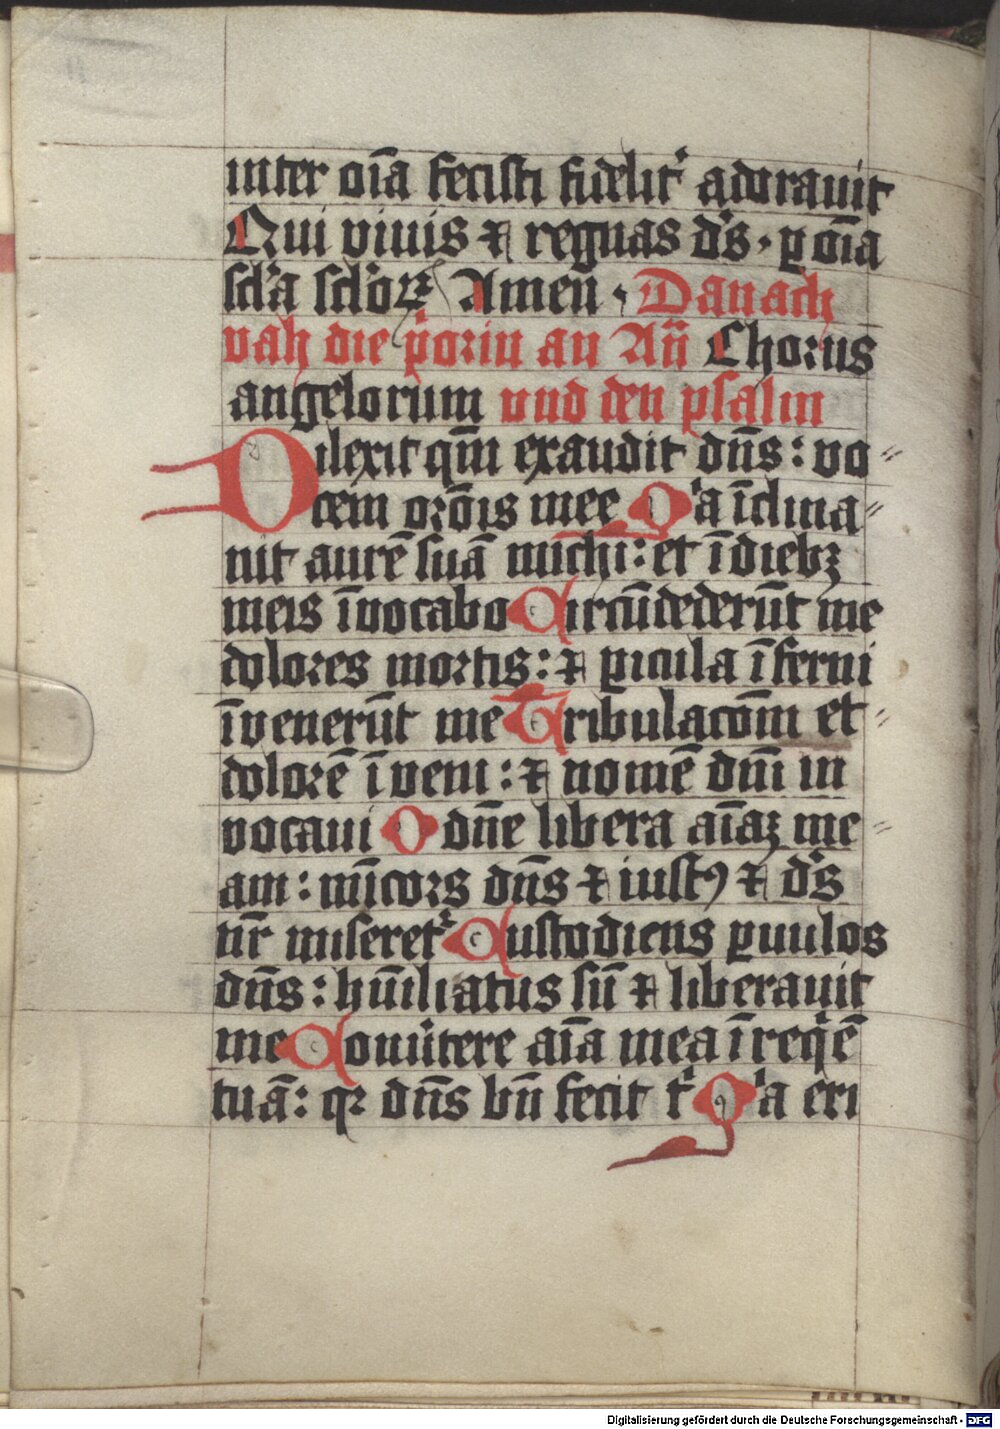 inter oīa fecisti fidelit᷑ adorauit
Qui viuis ⁊ regnas d᷑s · ꝑ oīa
scl᷑a scl᷑oꝝ Amen · Danach
vah die p᷑orin an An̄ Chorus
angelorum vnd den psalm
Dilexit qm̄ exaudit dn̄s : vo⸗
cem or̄ois mee Q᷑a īclina⸗
uit aurē suā michi : et ī diebꝫ
meis īvocabo Circūdederūt me
dolores mortis : ⁊ ꝑicula īferni
īvenerūt me Tribulacōm et⸗
dolorē īveni : ⁊ nomē dn̄i in
vocaui O dn̄e libera aīaꝫ me⸗
am : mīcors dn̄s ⁊ iustꝰ ⁊ d᷑s
nr̄ miseret᷑ Custodiens ꝑuulos
dn̄s : hūiliatus sū ⁊ liberauit
me Conu᷑tere aīa mea ī req᷑ē
tuā : qꝛ dn̄s bn̄ fecit t᷑ Q᷑a eri
Digitalisierung gefördert durch die Deutsche Forschungsgemeinschaft - DFG